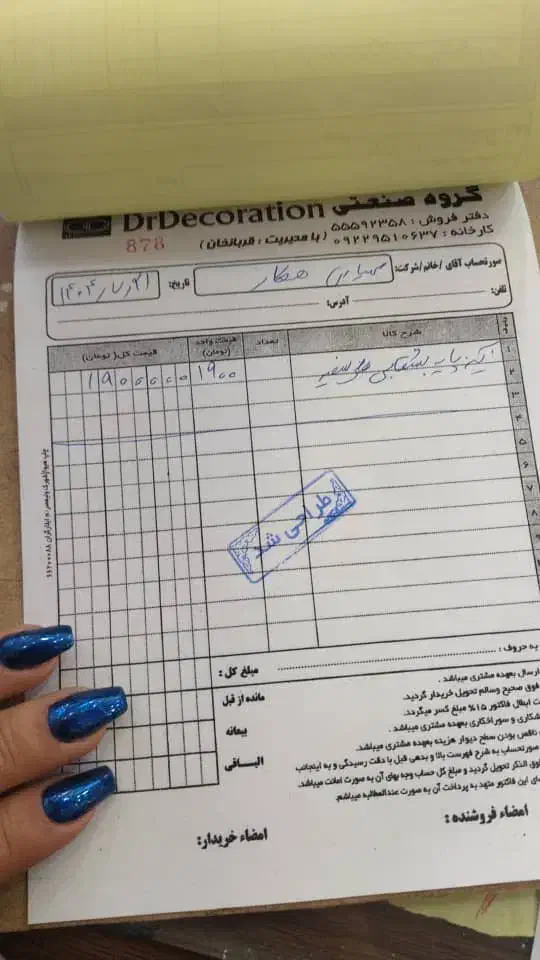 گروه صنعتی DrDecoration
دفتر فروش : ۵۵۵۹۲۳۵۸
کارخانه : ۰۹۲۲۹۵۱۰۶۳۷ ( با مدیریت : قربانخان )
878
صورتحساب آقای /خانم/ شرکت: همکار
تاریخ:
تلفن: آدرس:
ردیف شرح کالا تعداد قیمت واحد (تومان) قیمت کل( تومان)
۱ ۱۹۰۰ ۱۹۰۰۰۰۰
۲
۳
۴
۵
۶
۷
۸
۹
طراحی شد
به حروف : مبلغ کل :
ارسال بعهده مشتری میباشد .
فوق صحیح وسالم تحویل خریدار گردید.
ت ابطال فاکتور ۱۵% مبلغ کسر میگردد.
شکاری و سوراخکاری بعهده مشتری میباشد .
ناقص بودن سطح دیوار هزینه بعهده مشتری میباشد.
صورتحساب به شرح فهرست بالا و بدهی قبل با دقت رسیدگی و به اینجانب
فوق الذکر تحویل گردید و مبلغ کل حساب وجه بهای آن به صورت امانت میباشد.
ای این فاکتور متعهد به پرداخت آن به صورت عندالمطالبه میباشم.
مانده از قبل
بیعانه
الباقی
امضاء فروشنده :
امضاء خریدار: